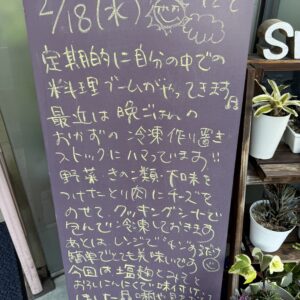 2/18(水)
定期的に自分の中での
料理ブームがやってきます
最近は晩ごはんの
おかずの冷凍作り置き
ストックにハマっています!!
野菜、きのこ類、下味を
つけたとり肉にチーズを
のせて、クッキングシートで
包んで冷凍しておきます
あとはレンジでチンするだけ
簡単でとても美味しいです
今回は塩麹とみそと
おろしにんにくで味付け
S